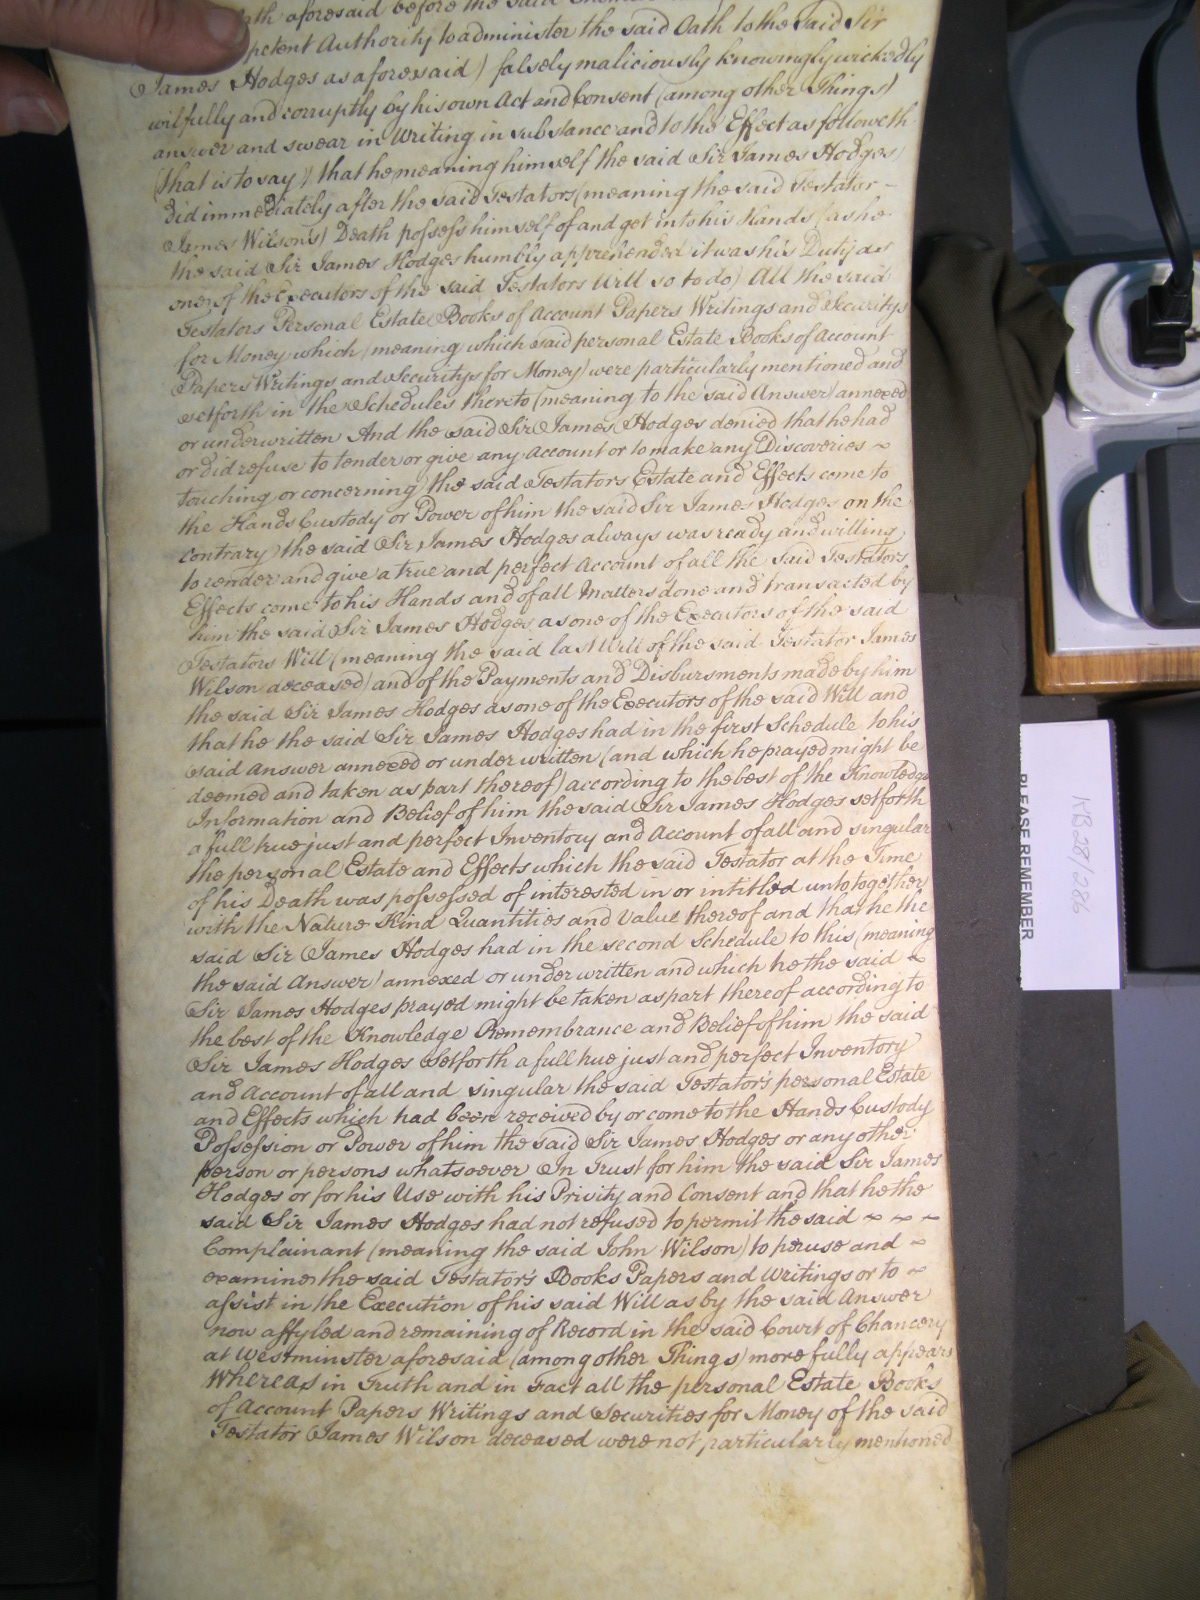 ath aforesaid before the said
petent Authority to administer the said Oath to the said Sir
James Hodges as aforesaid) falsely maliciously knowingly wickedly
wilfully and corruptly by his own Act and Consent (among other Things)
answer and swear in Writing in substance and to the Effect as followeth
(that is to say) that he meaning himself the said Sir James Hodges)
did immediately after the said Testators (meaning the said Testator -
James Wilson's) Death possess himself of and get into his Hands (as he
the said Sir James Hodges humbly apprehended it was his Duty as
one of the Executors of the said Testators Will so to do) All the said
Testators Personal Estate Books of Account Papers Writings and Securitys
for Money which (meaning which said personal Estate Books of Account
Papers Writings and Securitys for Money) were particularly mentioned and
setforth in the Schedules thereto (meaning to the said Answer) annexed
or underwritten And the said Sir James Hodges denied that he had
or did refuse to tender or give any Account or to make any Discoveries ~
touching or concerning the said Testators Estate and Effects come to
the Hands Custody or Power of him the said Sir James Hodges on the
contrary the said Sir James Hodges always was ready and willing
to render and give a true and perfect Account of all the said Testators
Effects come to his Hands and of all Matters done and transacted by
him the said Sir James Hodges as one of the Executors of the said
Testators Will (meaning the said last Will of the said Testator James
Wilson deceased) and of the Payments and Disbursments made by him
the said Sir James Hodges as one of the Executors of the said Will and
that he the said Sir James Hodges had in the first Schedule to his
said Answer annexed or under written (and which he prayed might be
deemed and taken as part thereof) according to the best of the Knowledge
Information and Belief of him the said Sir James Hodges setforth
a full true just and perfect Inventory and Account of all and singular
the personal Estate and Effects which the said Testator at the Time
of his Death was possessed of interested in or intitled unto together
with the Nature Kind Quantities and Value thereof and that he the
said Sir James Hodges had in the second Schedule to this (meaning
the said Answer) annexed or under written and which he the said ~
Sir James Hodges prayed might be taken as part thereof according to
the best of the Knowledge Remembrance and Belief of him the said
Sir James Hodges Setforth a full true just and perfect Inventory
and Account of all and singular the said Testator's personal Estate
and Effects which had been received by or come to the Hands Custody
Possession or Power of him the said Sir James Hodges or any other
person or persons whatsoever In Trust for him the said Sir James
Hodges or for his Use with his Privity and Consent and that he the
said Sir James Hodges had not refused to permit the said ~ ~ ~
Complainant (meaning the said John Wilson) to peruse and ~
examine the said Testator's Books Papers and Writings or to ~
assist in the Execution of his said Will as by the said Answer
now affyled and remaining of Record in the said Court of Chancery
at Westminster aforesaid (among other Things) more fully appears
Whereas in Truth and in Fact all the personal Estate Books
of Account Papers Writings and Securities for Money of the said
Testator James Wilson deceased were not particularly mentioned
PLEASE REMEMBER
KB 28/286